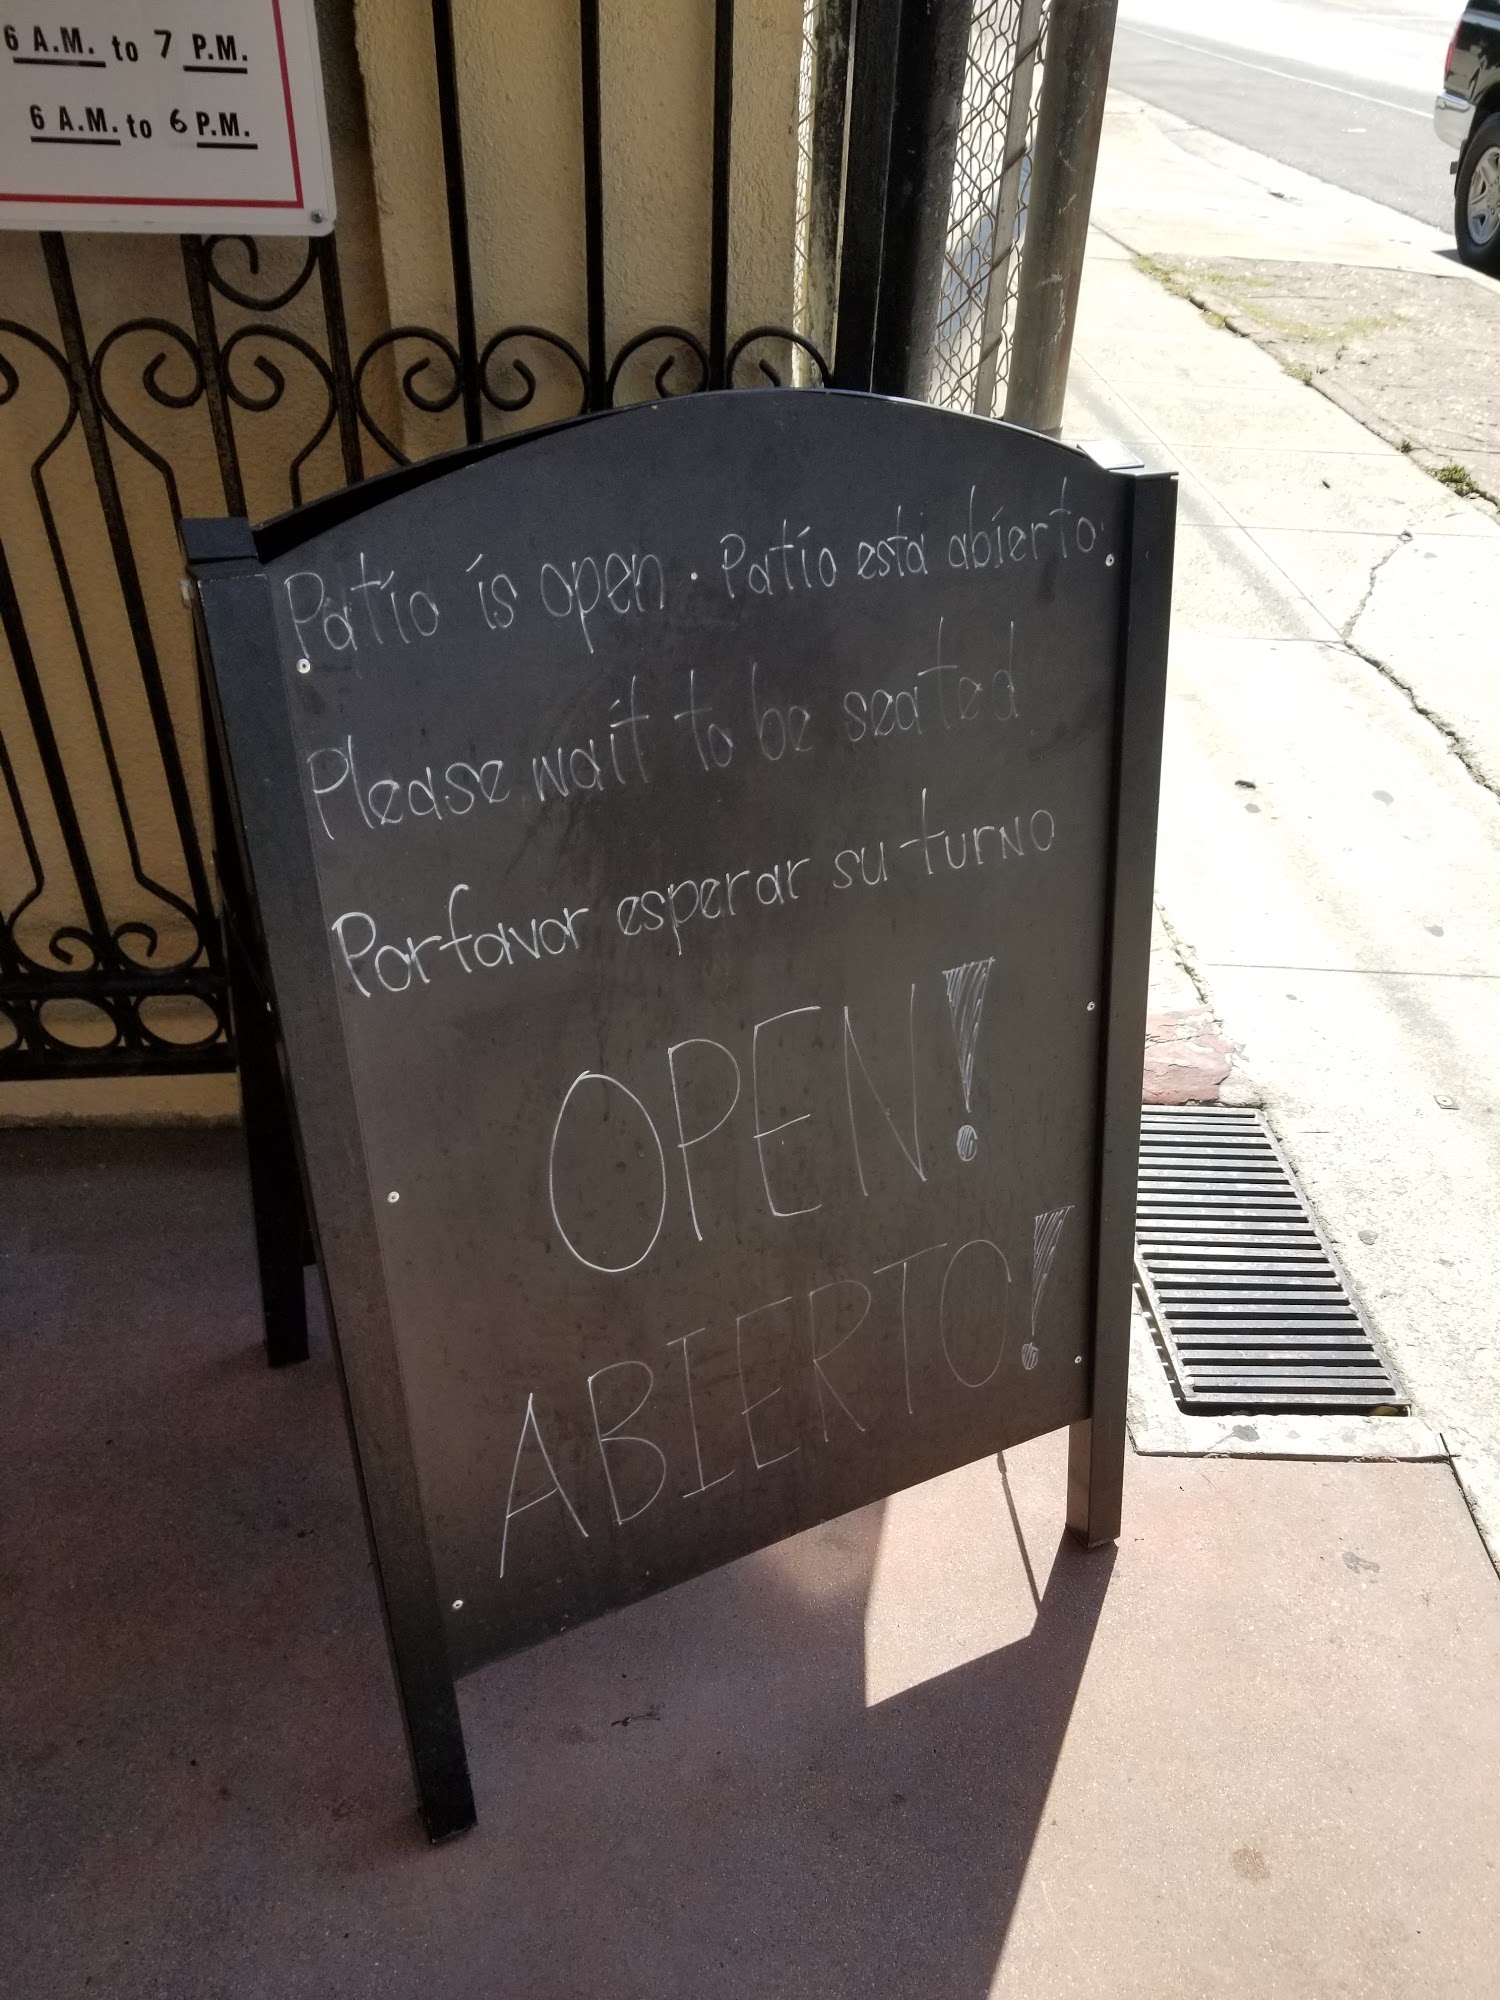 6 A.M. to 7 P.M.
6 A.M. to 6 P.M.
Patio is open. Patio está abierto.
Please wait to be seated
Porfavor esperar su turno
OPEN!
ABIERTO!